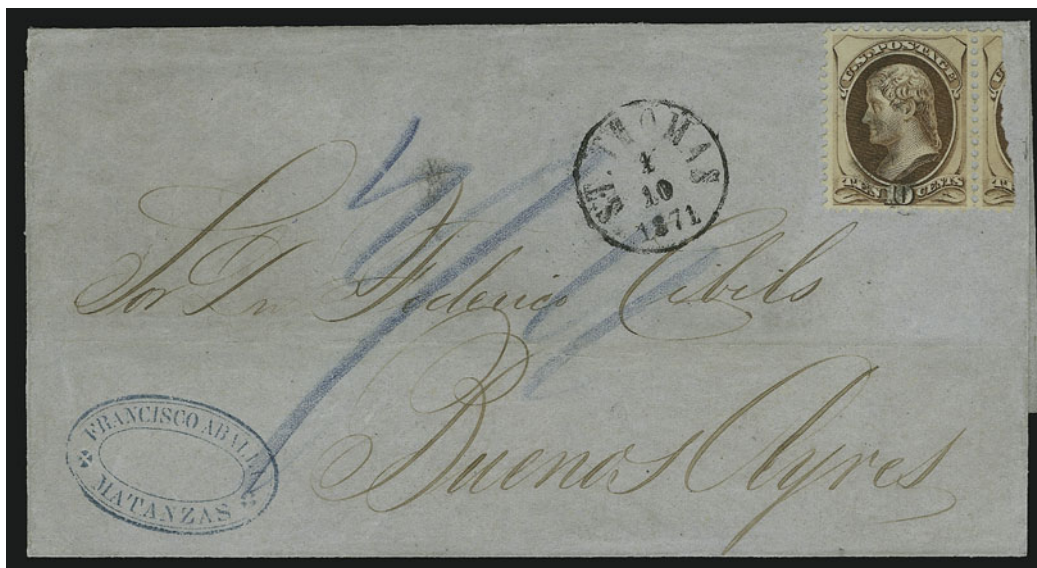 U.S. POSTAGE
TEN 10 CENTS
ST. THOMAS
1
10
1871
Sor Dn Federico Cibils
Buenos Ayres
FRANCISCO
MATANZAS